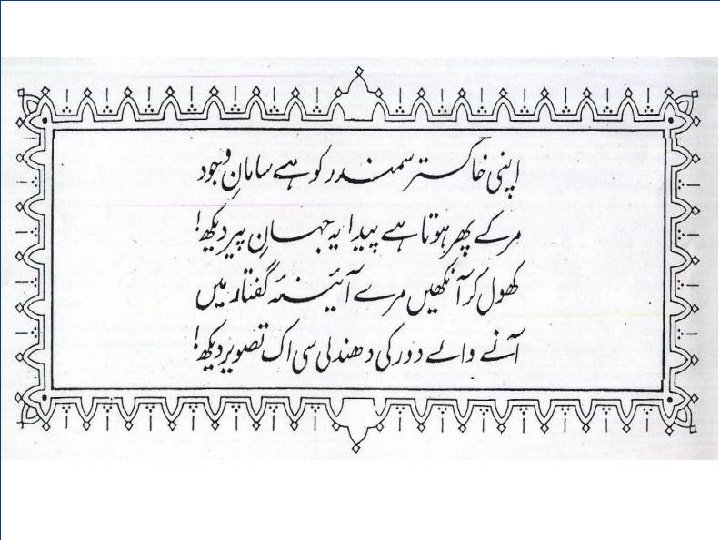 اپنی خاکستر سمندر کو ہے سامانِ وجود
مر کے پھر ہوتا ہے پیدا یہ جہانِ پیر دیکھ!
کھول کر آنکھیں مرے آئینۂ گفتار میں
آنے والے دور کی دھندلی سی اک تصویر دیکھ!